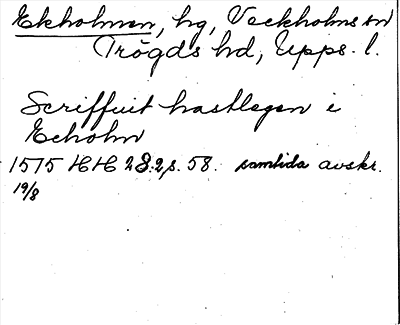 Ekholmen, hg, Veckholms sn
Trögds hd, Upps. l.
Scriffuit hastlegen i
Echolm
1575 HH 2B:2,s. 58. samtida avskr.
19/8